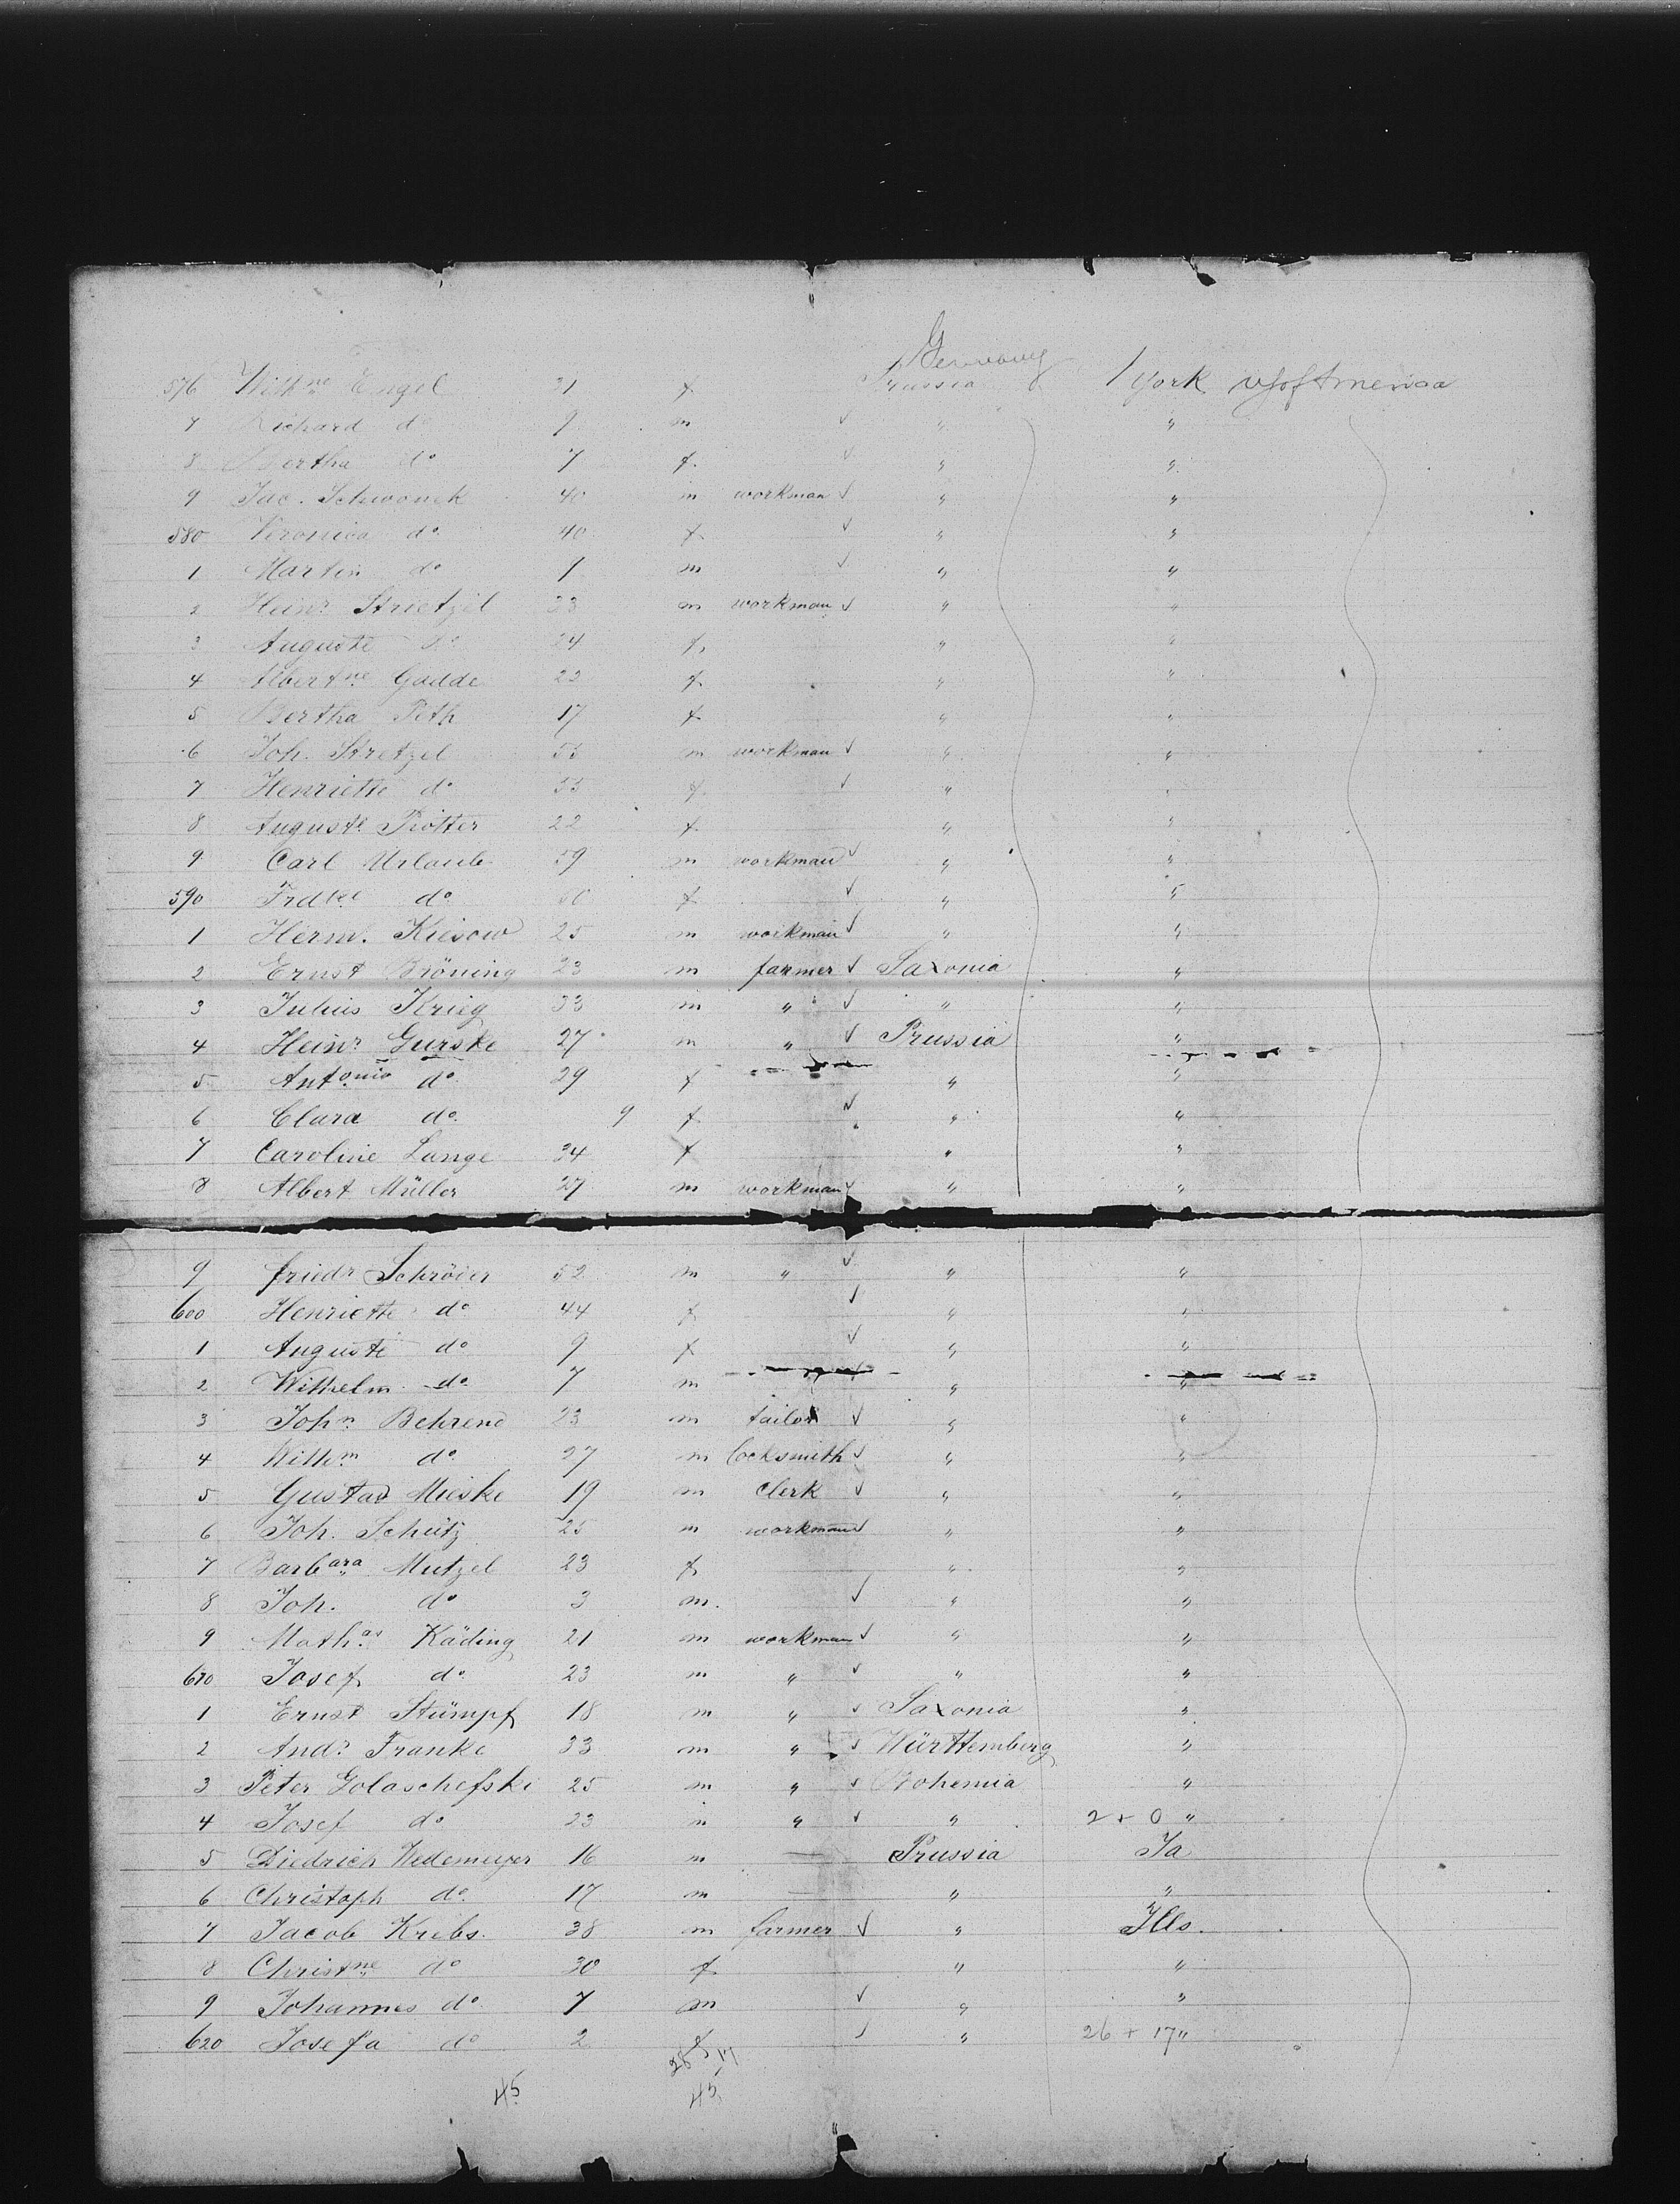 Germany
576 Withne Engel 21 f Prussia York USofAmerica
7 Richard do 9 m √ " "
8 Bertha do 7 f. √ " "
9 Jac. Schwonek 40 m workman √ " "
580 Veronica do 40 f. √ " "
1 Martin do 1 m √ " "
2 Heinr. Strietzel 23 m workman √ " "
3 Auguste do 24 f. " "
4 Albertne Gadde 23 f. " "
5 Bertha Peth 17 f " "
6 Joh. Stretzel 55 m workman √ " "
7 Henriette do 55 f. √ " "
8 Auguste 22 f. " "
9 Carl Urlaub 59 m workman √ " "
590 Frdke do 60 f √ " "
1 Herm. Kiesow 25 m workman √ " "
2 Ernst Bröning 23 m farmer √ Saxonia "
3 Julius Krieg 33 m " √ " "
4 Heinr. Gurske 27 m " √ Prussia "
5 Antonia do 29 f " "
6 Clara do 9 f √ " "
7 Caroline Lange 34 f " "
8 Albert Müller 27 m workman √ " "
9 Friedr Schröder 52 m " √ " "
600 Henriette do 44 f √ " "
1 Auguste do 9 f √ " "
2 Wilhelm do 7 m " "
3 John. Behrend 23 m tailor √ " "
4 Willm do 27 m locksmith √ " "
5 Gustav Mieske 19 m clerk √ " "
6 Joh. Schütz 25 m workman √ " "
7 Barbara Mutzel 23 f " "
8 Joh. do 3 m. √ " "
9 Mathas Käding 21 m workman √ " "
610 Josef do 23 m " √ " "
1 Ernst Stümpf 18 m " √ Saxonia "
2 Andr. Franke 33 m " √ Württemberg "
3 Peter Golaschefski 25 m " √ Bohemia "
4 Josef do 23 m " √ " 2 + 0 "
5 Diedrich Wedemeyer 16 m — Prussia Ia
6 Christoph do 17 m — " "
7 Jacob Krebs 38 m farmer √ " Ills.
8 Christne do 30 f " "
9 Johannes do 7 m √ " "
620 Josefa do 2 f √ " 26 + 17 "
28 17
45 45